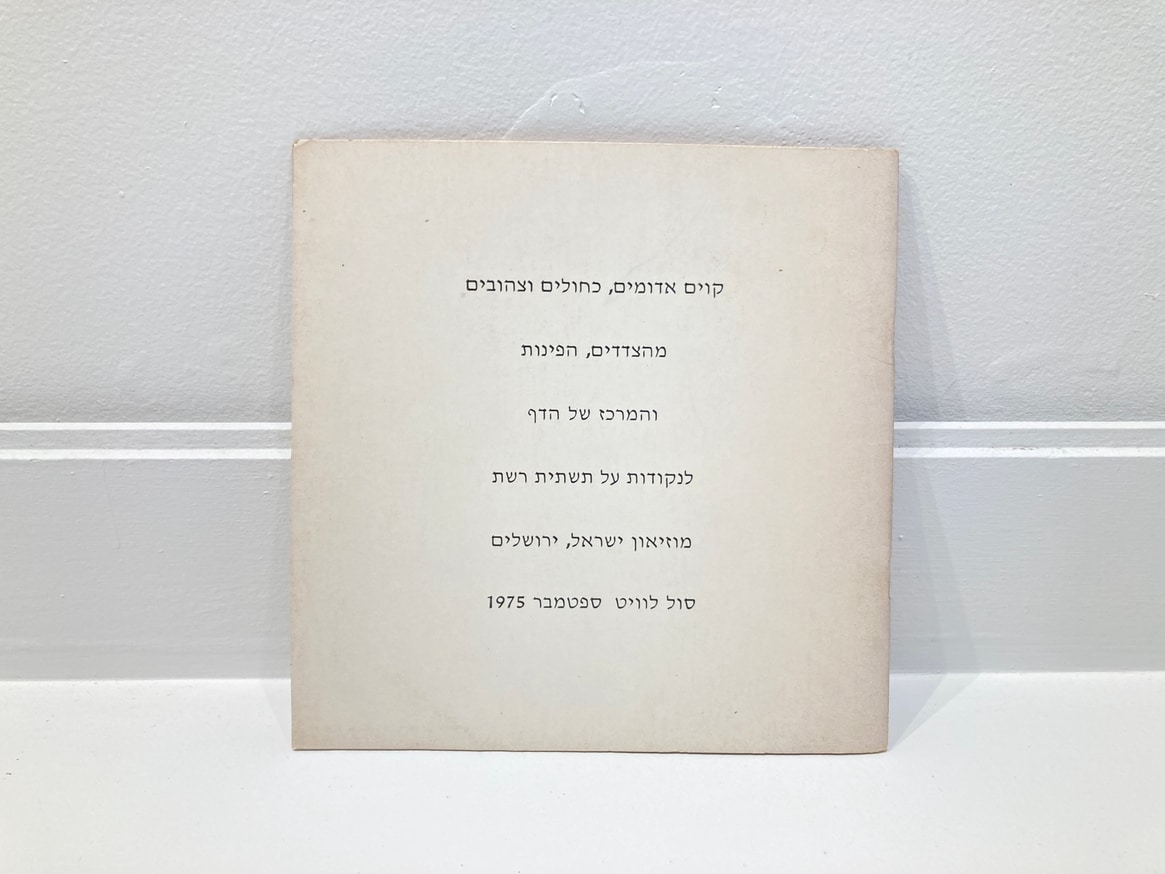 קוים אדומים, כחולים וצהובים
מהצדדים, הפינות
והמרכז של הדף
לנקודות על תשתית רשת
מוזיאון ישראל, ירושלים
סול לוויט ספטמבר 1975